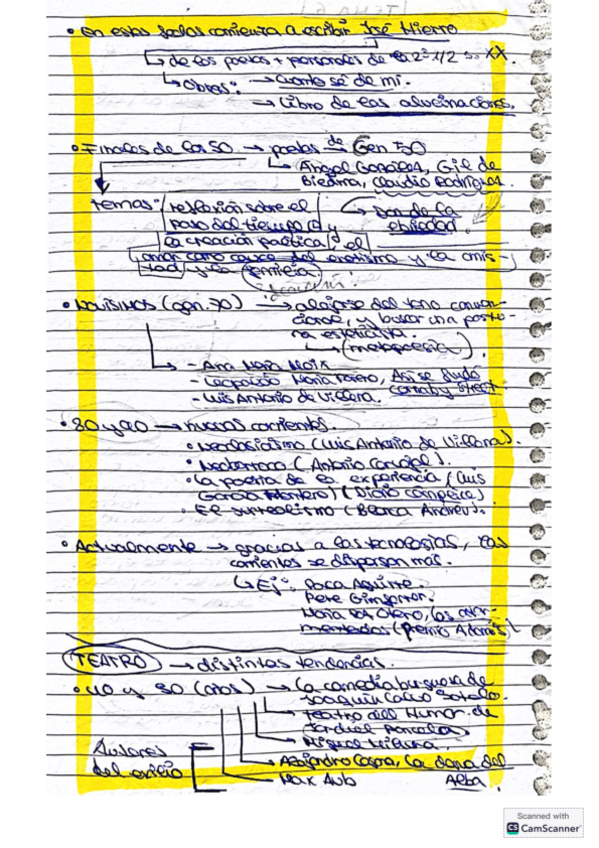 • En estas fechas comienza a escribir José Hierro
↳ de los poetas + personales de la 2ª 1/2 s. XX.
↳ Obras: → Cuanto sé de mí.
→ Libro de las alucinaciones.
• Finales de los 50 → poetas de Gen 50
↳ Ángel González, Gil de
Biedma, Claudio Rodríguez.
temas: reflexión sobre el
↳ Don de la
paso del tiempo y
ebriedad.
la creación poética, el
amor como cauce del erotismo y la amis-
tad y la familia.
• NOVÍSIMOS (gen. 70) → alejarse del tono conven-
cional, y buscar una postu-
ra esteticista.
↳ (metapoesía).
↳ - Ana María Moix
- Leopoldo María Panero, Así se fundó
Carnaby Street.
- Luis Antonio de Villena.
• 80 y 90 → nuevas corrientes.
• Neoclasicismo (Luis Antonio de Villena).
• Nedarroca (Antonio Carvajal).
• La poesía de la experiencia (Luis
García Montero) (Diario cómplice)
• El surrealismo (Blanca Andreu).
• Actualmente → gracias a las tecnologías, las
corrientes se dispersan más.
↳ Ej: Paca Aguirre.
Pere Gimferrer.
premio Adonáis
TEATRO → distintas tendencias.
• 40 y 50 (años) → La comedia burguesa de
Joaquín Calvo Sotelo.
→ Teatro del Humor de
Jardiel Poncela
→ Miguel Mihura.
Autores
del exilio
→ Alejandro Casona, La dama del
Alba
→ Max Aub
Scanned with
CS CamScanner